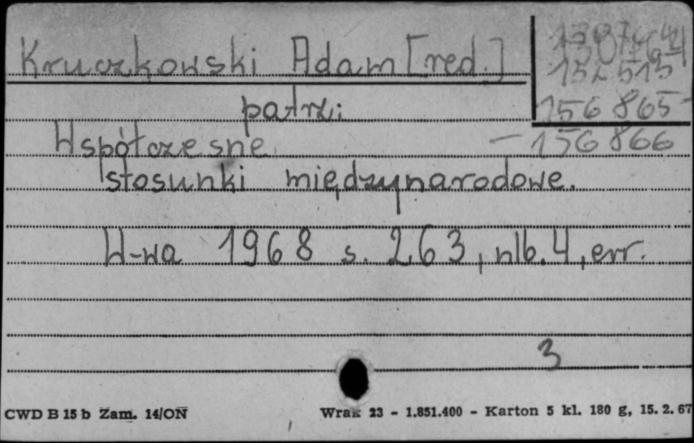 Kruczkowski Adam [red.]
152513
156 865
patrz:
Współczesne
— 156 866
stosunki międzynarodowe.
W-wa 1968 s. 263, nlb. 4, err.
3
CWD B 15 b Zam. 14/ON
Wrak 23 - 1.851.400 - Karton 5 kl. 180 g, 15. 2. 67